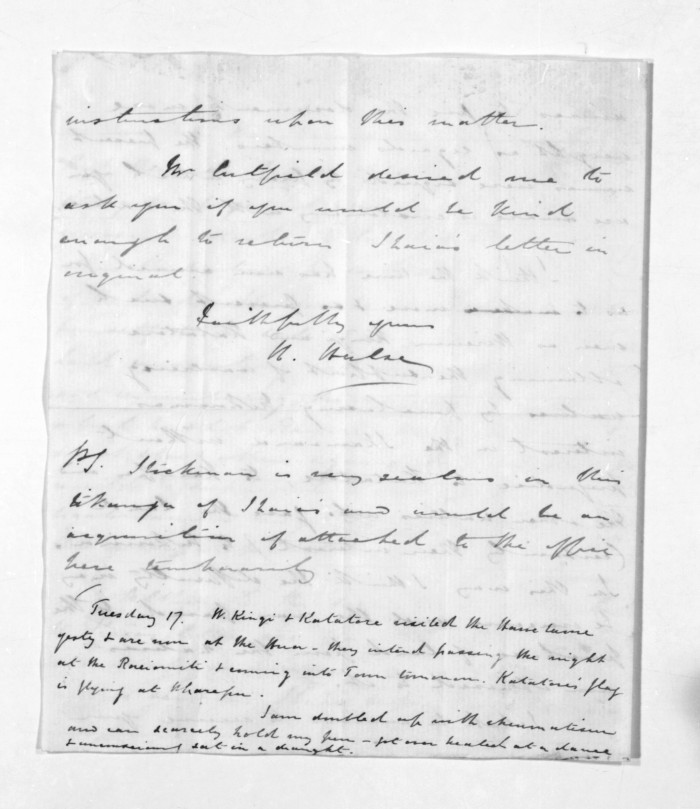 instructions upon this matter.
Mr Cutfield desired me to
ask you if you would be kind
enough to return Ihaia's letter in
original
Faithfully yours
H. Halse
P.S. is very zealous in this
tikanga of Ihaias and would be an
acquisition if attached to the office
here
Tuesday 17. W. Kingi & Katatore visited the Hauetaure
yesty & are now at the Hua - they intend passing the night
at the & coming into Town tomorrow. Katatore's flag
is flying at
I am doubled up with rheumatism
and can scarcely hold my pen - got over heated at a dance
& sat in a draught.